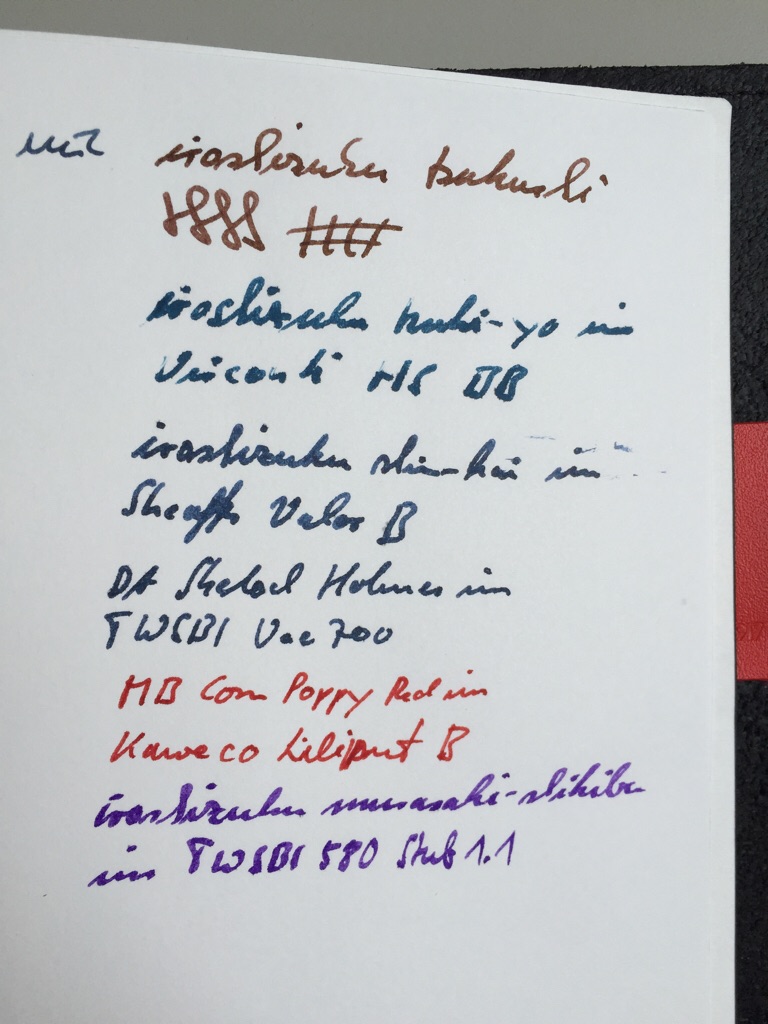 mit iroshizuku tsukushi
iroshizuku tsuki-yo im
Visconti HS BB
iroshizuku shin-kai im
Sheaffer Valor B
DA Sherlock Holmes im
TWSBI Vac 700
MB Corn Poppy Red im
Kaweco Liliput B
iroshizuku murasaki-shikibu
im TWSBI 580 Stub 1.1